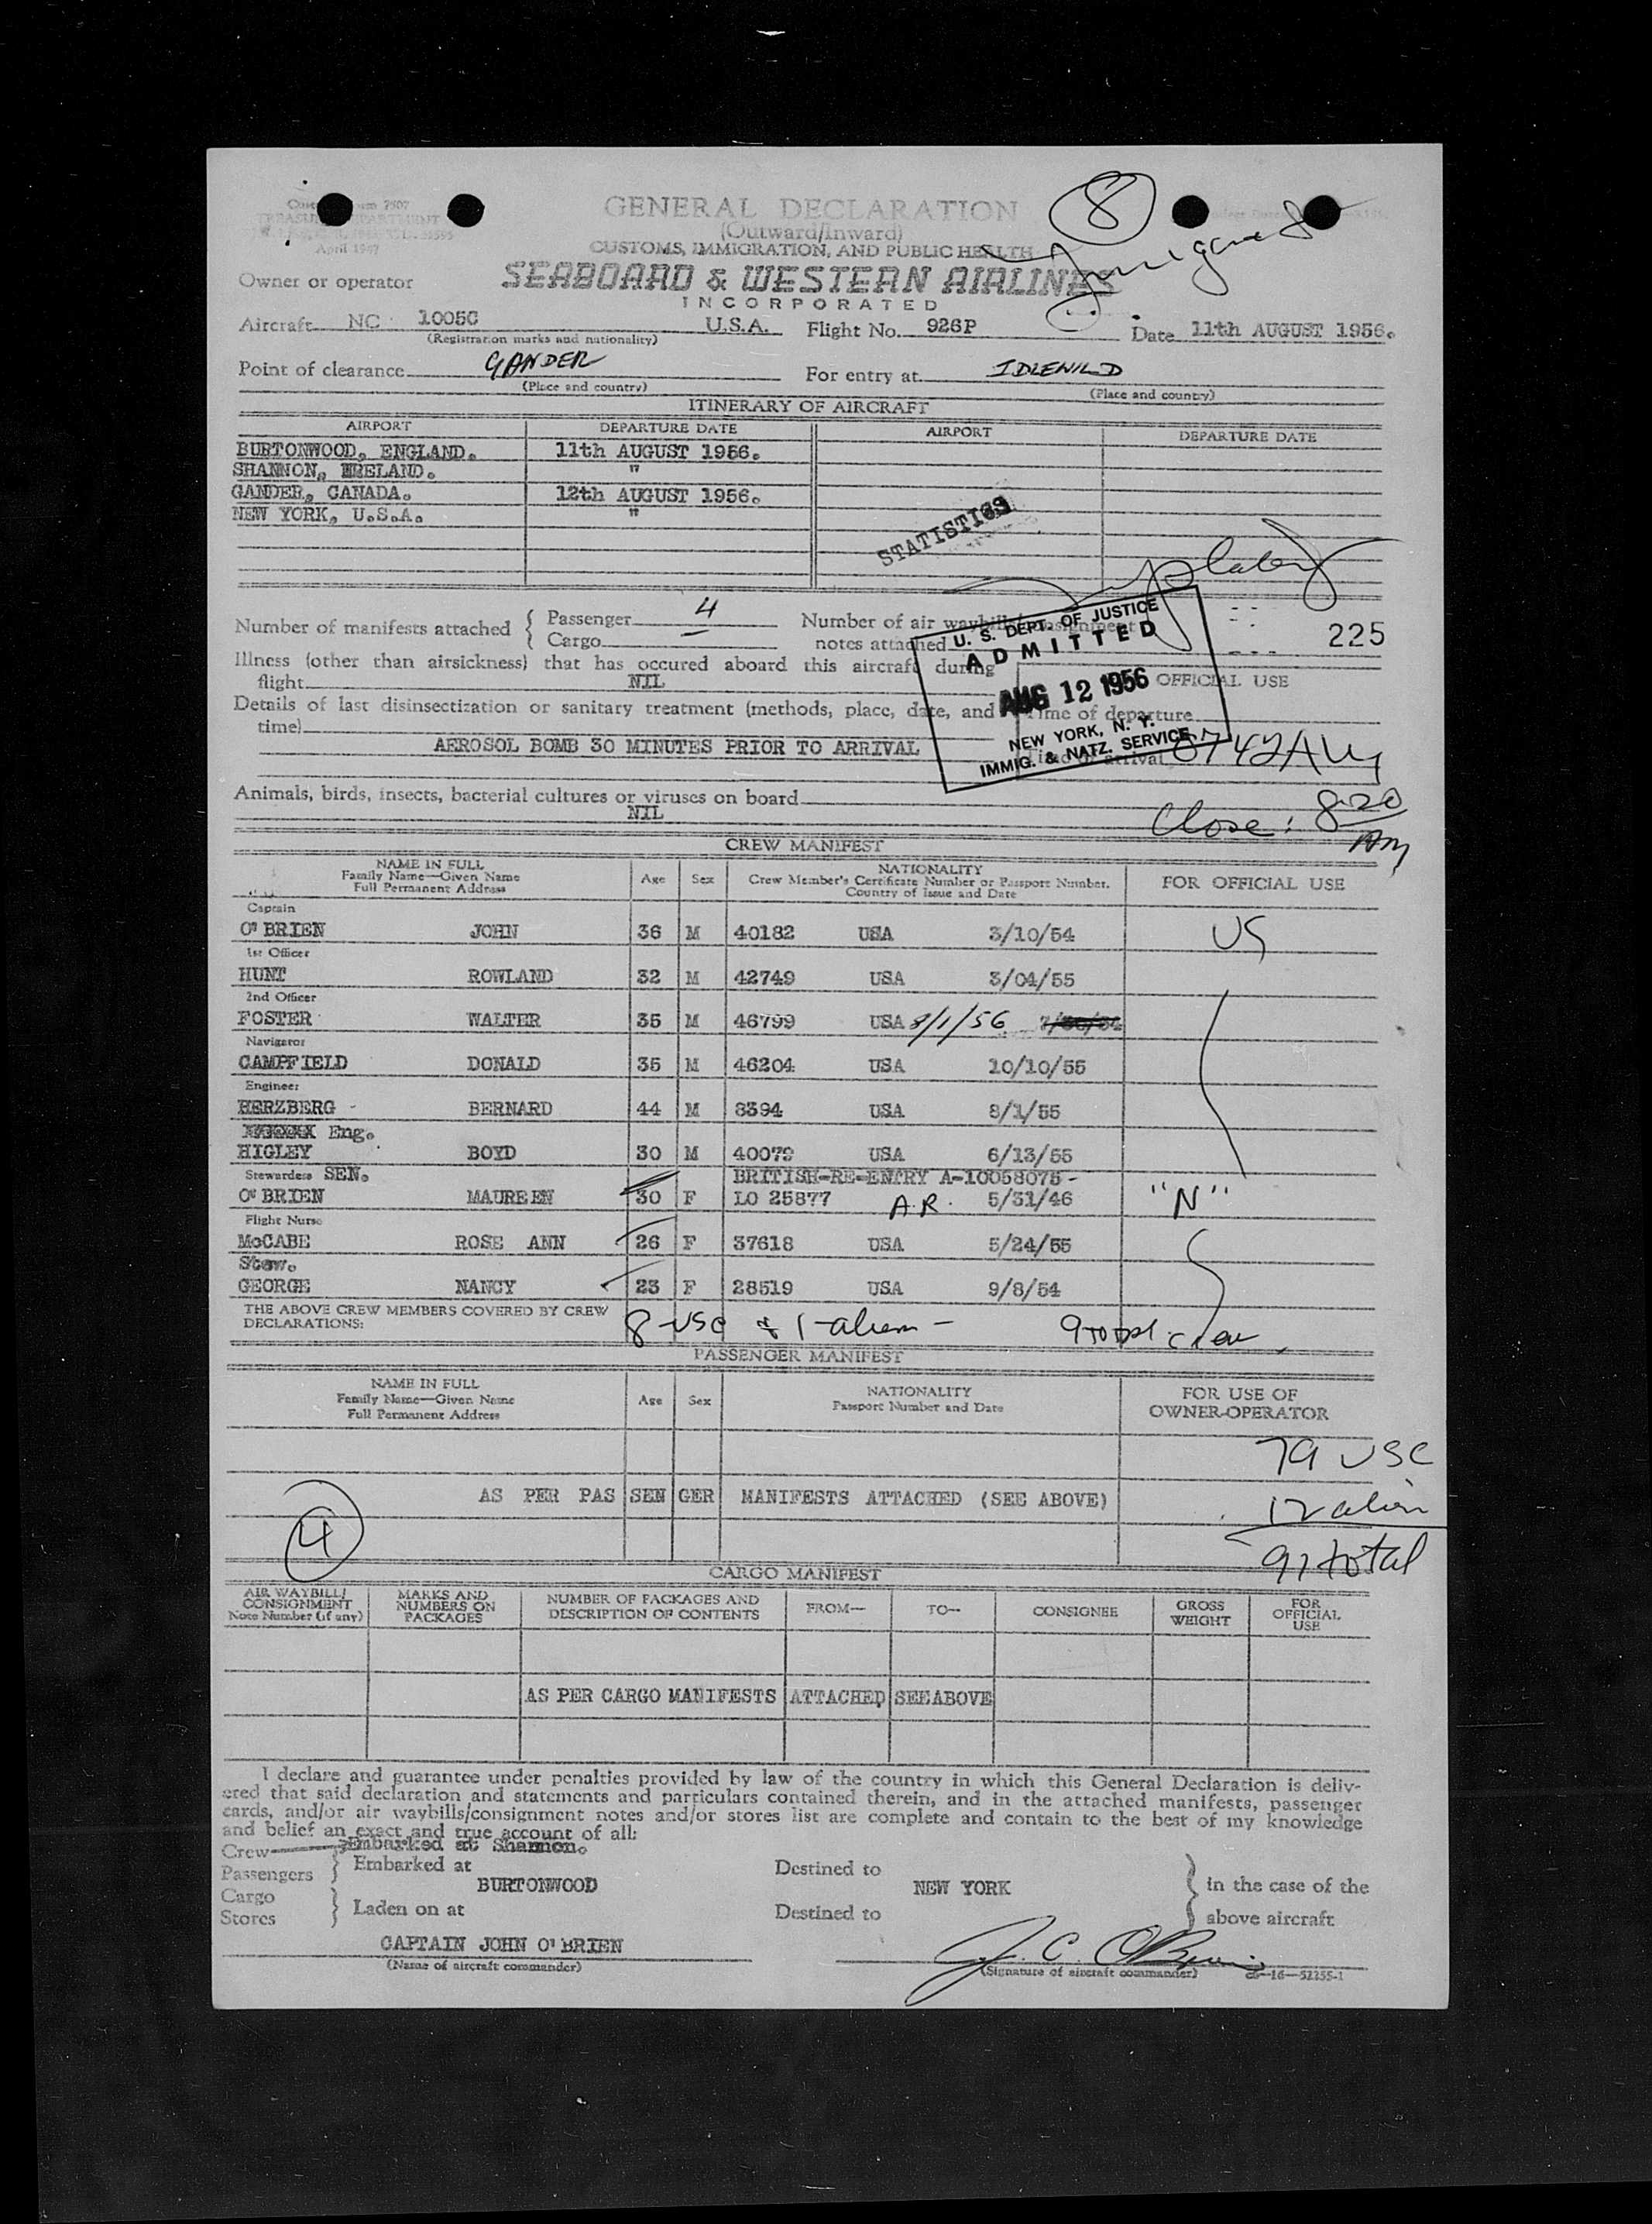 GENERAL DECLARATION
(Outward/Inward)
CUSTOMS, IMMIGRATION, AND PUBLIC HEALTH
8
April 1947
Owner or operator
SEABOARD & WESTERN AIRLINES
INCORPORATED
Aircraft NC 1005C U.S.A. Flight No. 926P Date 11th AUGUST 1956.
(Registration marks and nationality)
Point of clearance GANDER For entry at IDLEWILD
(Place and country) (Place and country)
ITINERARY OF AIRCRAFT
AIRPORT DEPARTURE DATE AIRPORT DEPARTURE DATE
BURTONWOOD, ENGLAND. 11th AUGUST 1956.
SHANNON, IRELAND. "
GANDER, CANADA. 12th AUGUST 1956.
NEW YORK, U.S.A. "
STATISTICS
Number of manifests attached { Passenger 4
Cargo —
Number of air waybills/consignment
notes attached
225
U. S. DEPT. OF JUSTICE
ADMITTED
AUG 12 1956
NEW YORK, N. Y.
IMMIG. & NATZ. SERVICE
Illness (other than airsickness) that has occured aboard this aircraft during
flight NIL
OFFICIAL USE
Details of last disinsectization or sanitary treatment (methods, place, date, and
time)
Time of departure
AEROSOL BOMB 30 MINUTES PRIOR TO ARRIVAL
Time of arrival 0742AM
Animals, birds, insects, bacterial cultures or viruses on board
NIL
Close: 8:20 AM
CREW MANIFEST
NAME IN FULL
Family Name—Given Name
Full Permanent Address
Age Sex
NATIONALITY
Crew Member's Certificate Number or Passport Number.
Country of Issue and Date
FOR OFFICIAL USE
Captain
O'BRIEN JOHN 36 M 40182 USA 3/10/54 US
1st Officer
HUNT ROWLAND 32 M 42749 USA 3/04/55
2nd Officer
FOSTER WALTER 35 M 46799 USA 8/1/56
Navigator
CAMPFIELD DONALD 35 M 46204 USA 10/10/55
Engineer
HERZBERG BERNARD 44 M 8394 USA 8/1/55
Eng.
HIGLEY BOYD 30 M 40079 USA 6/13/55
Stewardess SEN. BRITISH-RE-ENTRY A-10058075-
O'BRIEN MAUREEN 30 F LO 25877 A.R. 5/31/46 "N"
Flight Nurse
McCABE ROSE ANN 26 F 37618 USA 5/24/55
Stew.
GEORGE NANCY 23 F 28519 USA 9/8/54
THE ABOVE CREW MEMBERS COVERED BY CREW
DECLARATIONS:
8-USC & 1-alien - 9 total crew
PASSENGER MANIFEST
NAME IN FULL
Family Name—Given Name
Full Permanent Address
Age Sex
NATIONALITY
Passport Number and Date
FOR USE OF
OWNER-OPERATOR
79 USC
AS PER PASSENGER MANIFESTS ATTACHED (SEE ABOVE)
12 alien
4
91 total
CARGO MANIFEST
AIR WAYBILL/
CONSIGNMENT
Note Number (if any)
MARKS AND
NUMBERS ON
PACKAGES
NUMBER OF PACKAGES AND
DESCRIPTION OF CONTENTS
FROM— TO— CONSIGNEE
GROSS
WEIGHT
FOR
OFFICIAL
USE
AS PER CARGO MANIFESTS ATTACHED SEE ABOVE
I declare and guarantee under penalties provided by law of the country in which this General Declaration is deliv-
ered that said declaration and statements and particulars contained therein, and in the attached manifests, passenger
cards, and/or air waybills/consignment notes and/or stores list are complete and contain to the best of my knowledge
and belief an exact and true account of all:
Crew Embarked at Shannon.
Passengers } Embarked at BURTONWOOD Destined to NEW YORK } in the case of the
Cargo
Stores } Laden on at Destined to above aircraft
CAPTAIN JOHN O'BRIEN
(Name of aircraft commander)
J. C. O'Brien
(Signature of aircraft commander) 16—52255-1